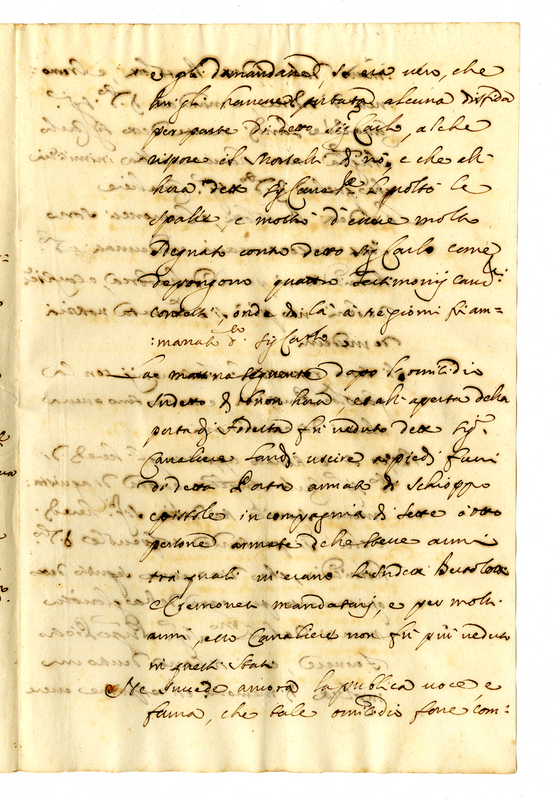 e gli domandane, se era vero, che
lui gli havesse portata alcuna disfida
per parte di detto Sig. Carlo, al che
rispose il Morselli di no, e che al-
lhora detto Sig. Cavre li voltò le
spalle e mostrò d'essere molto
sdegnato contro detto Sig. Carlo come
depongono quattro Testimonij
contesti, onde di là à tre giorni fù am-
:manato do. Sig. Carlo
La matina seguente dopo l'omicidio
sudetto di buon hora, et all'aperta della
porta di Fodesta fù veduto detto Sig.
Cavaliere Landi uscire a piedi fuori
di detta Porta armato di schioppo
e pistole in compagnia di sette o otto
persone armate
tra quali vi erano li sudetti Bertolotti
e Cremonesi mandatarij, e per molti
anni, esso Cavaliere non fù più veduto
in questi Stati
Ne succede ancora la publica voce, e
fama, che tale omicidio fosse com-